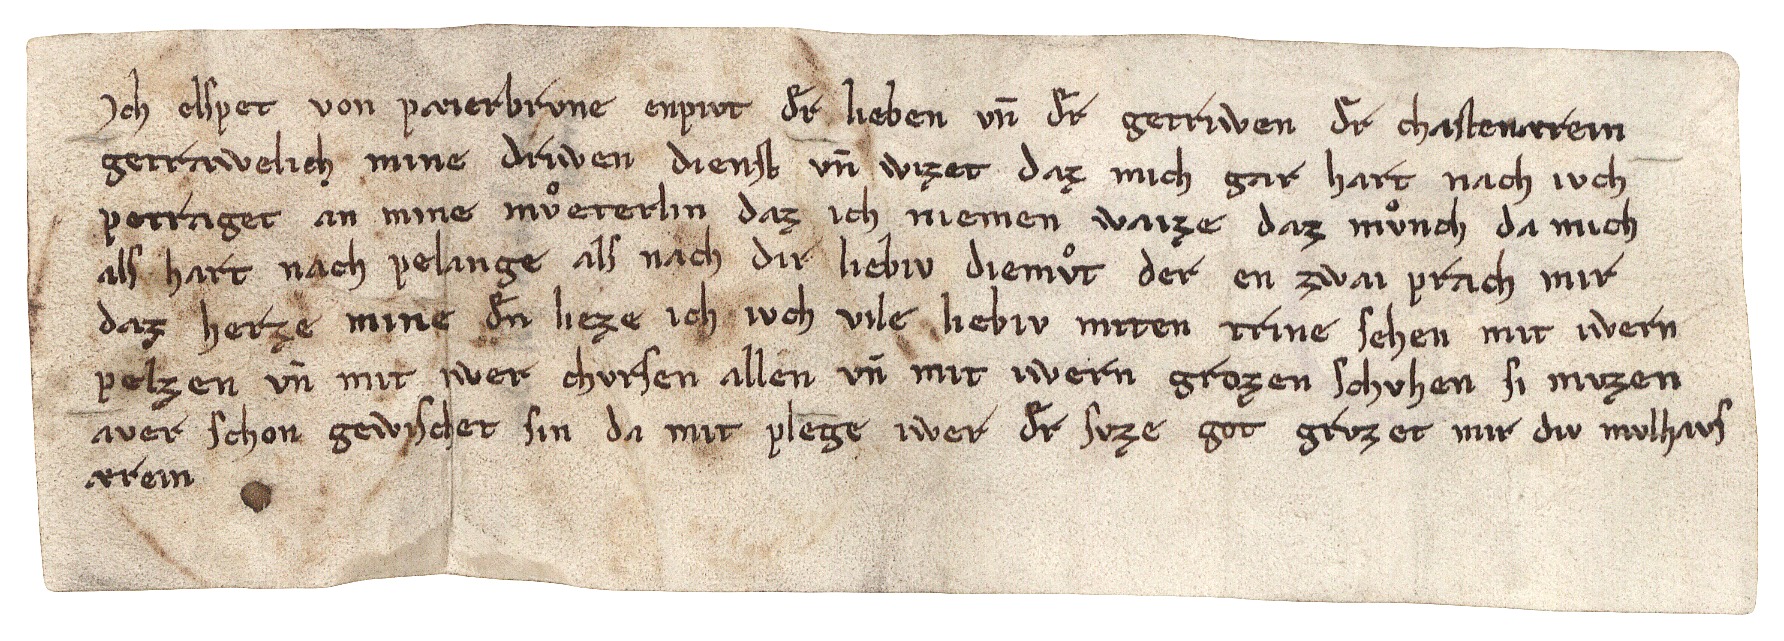 Ich elspet von paierbrvne enpivt dʼr lieben vn̄ dʼr getriwen dʼr chastenærrein
getræwelich mine driwen dienst vn̄ wizet daz mich gar hart nach ivch
petraget an mine mvͦeterlin daz ich niemen waize daz mvͦnch da mich
als hart nach pelange als nach dir liebiv diemvͦt der en zwai prach mir
daz herze mine dʼn lieze ich ivch vile liebiv miten trine sehen mit iwern
pelzen vn̄ mit iwer chvrsen allen vn̄ mit iwern grozen schvhen si mvzen
aver schon gewischet sin da mit plege iwer dʼr svze got grvzet mir div mvlhavs
ærrein